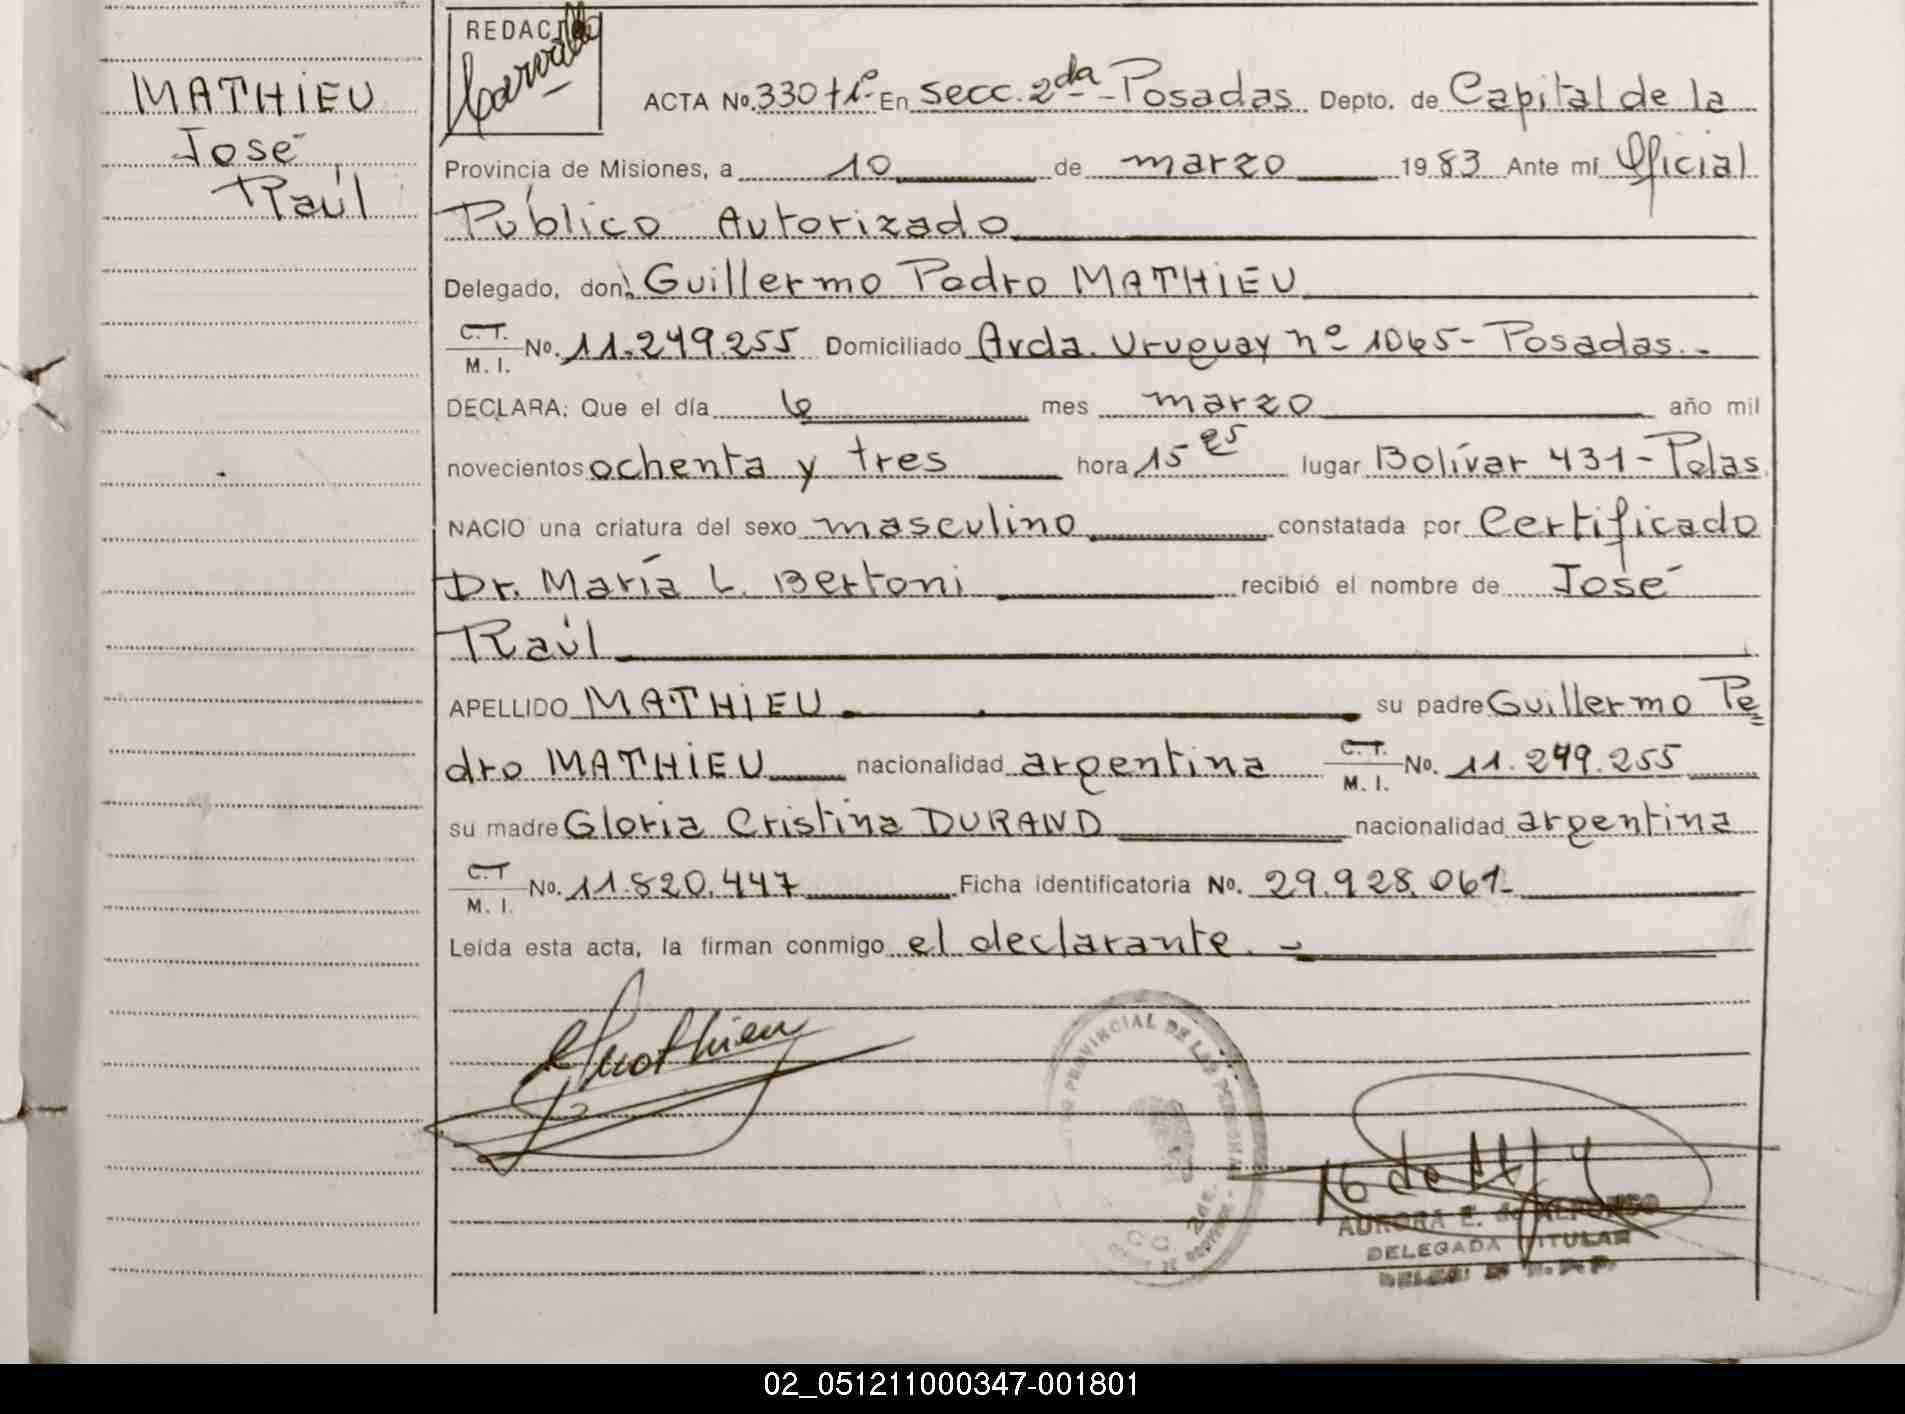 REDAC
MATHIEU
José
Raúl
ACTA No. 330 tiº En secc. 2da - Posadas Depto. de Capital de la
Provincia de Misiones, a 10 de marzo 1983 Ante mí Oficial
Público Autorizado
Delegado, don: Guillermo Pedro MATHIEU
C.T. M. I. No. 11.249.255 Domiciliado Avda. Uruguay nº 1065 - Posadas. -
DECLARA: Que el día 6 mes marzo año mil
novecientos ochenta y tres hora 15 es lugar Bolívar 431 - Pdas.
NACIO una criatura del sexo masculino constatada por Certificado
Dr. María L. Bertoni recibió el nombre de José
Raúl
APELLIDO MATHIEU su padre Guillermo Pe
dro MATHIEU nacionalidad argentina C.T. M. I. No. 11.249.255
su madre Gloria Cristina DURAND nacionalidad argentina
C.T M. I. No. 11.820.447 Ficha identificatoria No. 29.928.061-
Leída esta acta, la firman conmigo el declarante. -
PROVINCIAL DE LAS PERSONAS
2da.
AURORA E. de ALFONSO
DELEGADA TITULAR
02_051211000347-001801